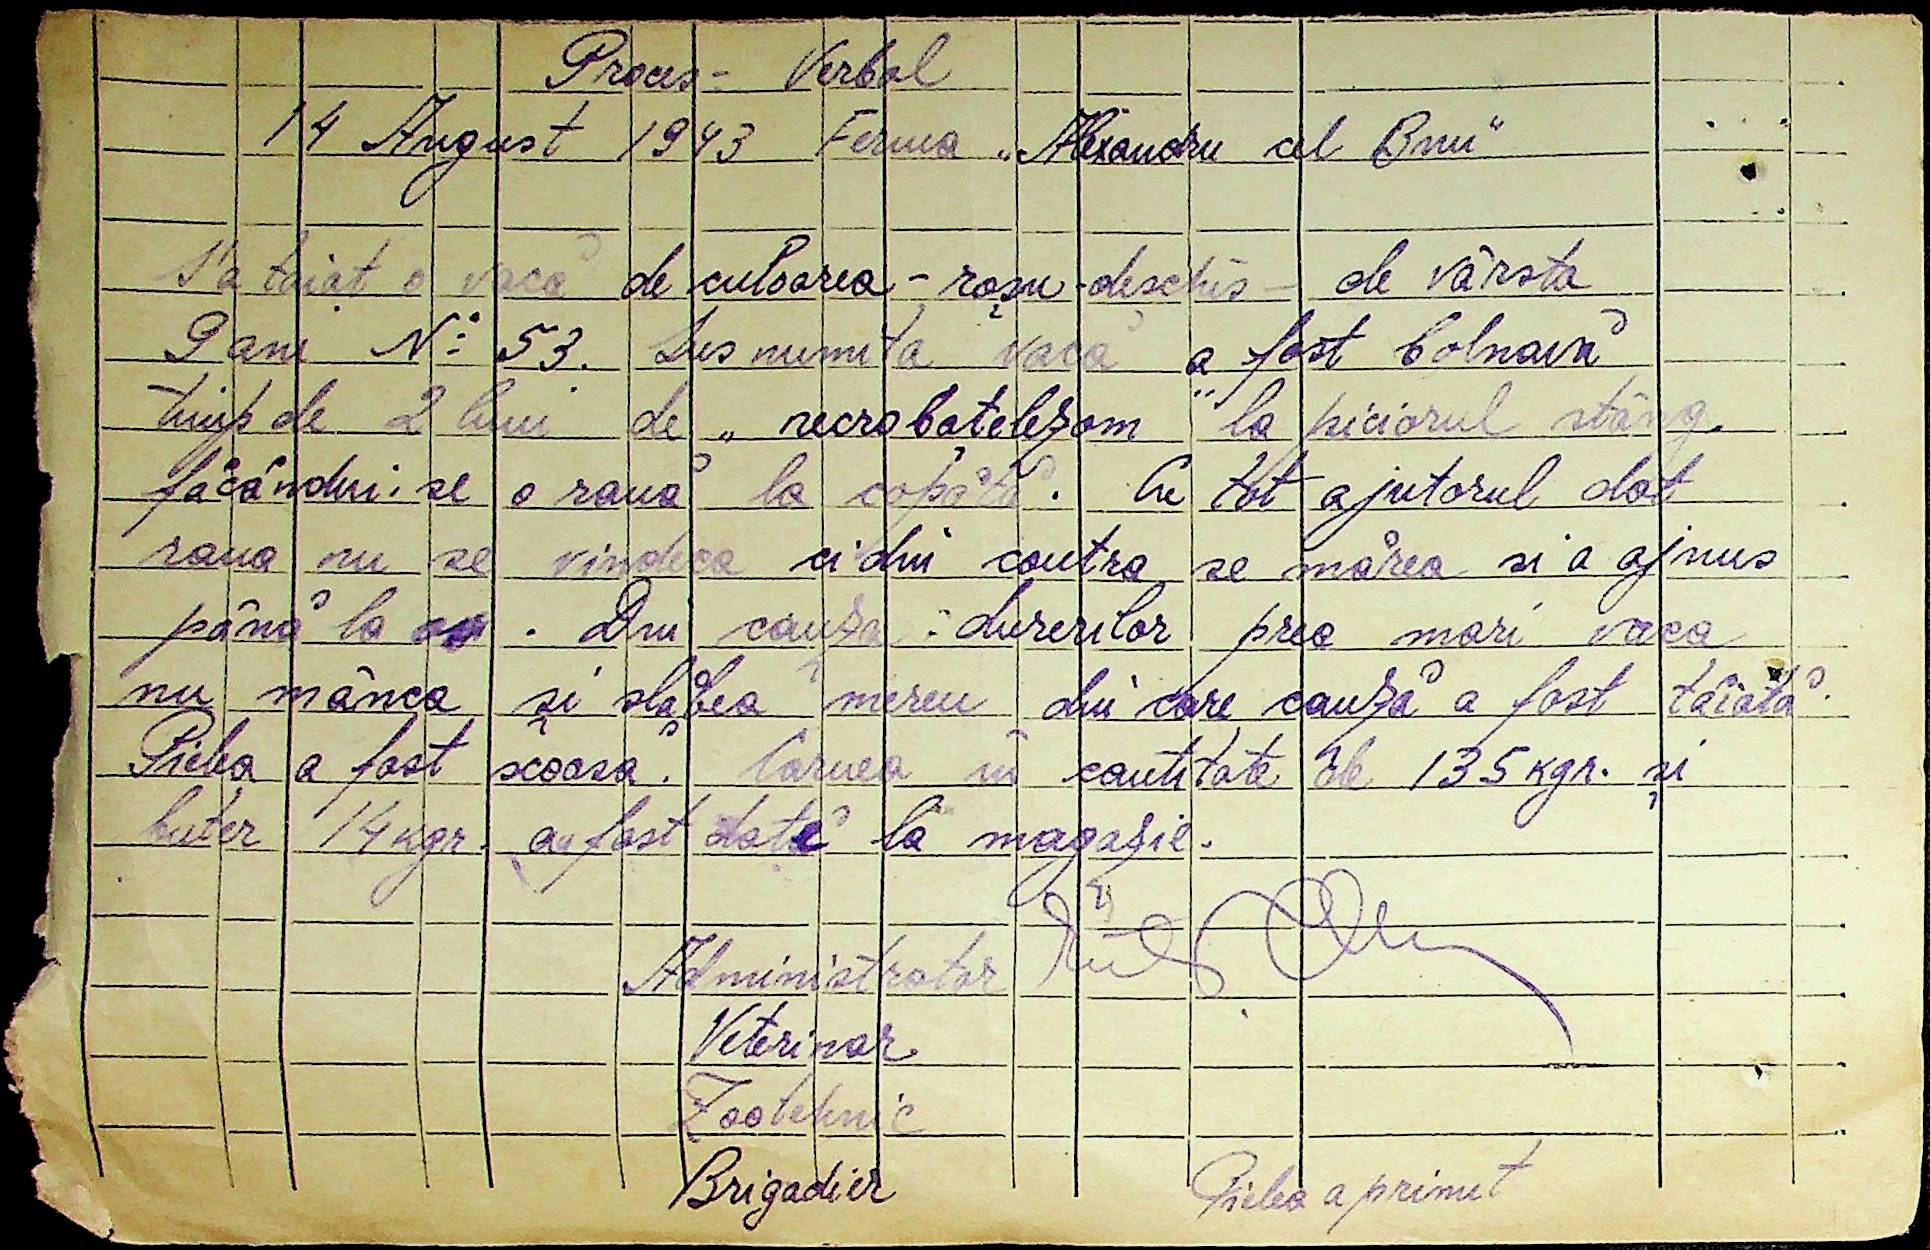 Proces - Verbal
14 August 1943 Ferma „Alexandru cel Bun"
S'a tăiat o vacă de culoarea - roșu - deschis - de vârsta
9 ani Nº 53. Sus numita vacă a fost bolnavă
timp de 2 luni de „necrobatelezom" la piciorul stâng
făcându-i-se o rană la copâtă. Cu tot ajutorul dat
rana nu se vindeca ci din contra se mărea si a ajuns
până la os. Din cauza durerilor prea mari vaca
nu mânca și slăbea mereu din care cauză a fost tăiată.
Pielea a fost scoasă. Carnea în cantitate de 135 kgr. și
buter 14 kgr. au fost date la magazie.
Administrator
Veterinar
Zootehnic
Brigadier Pielea a primit